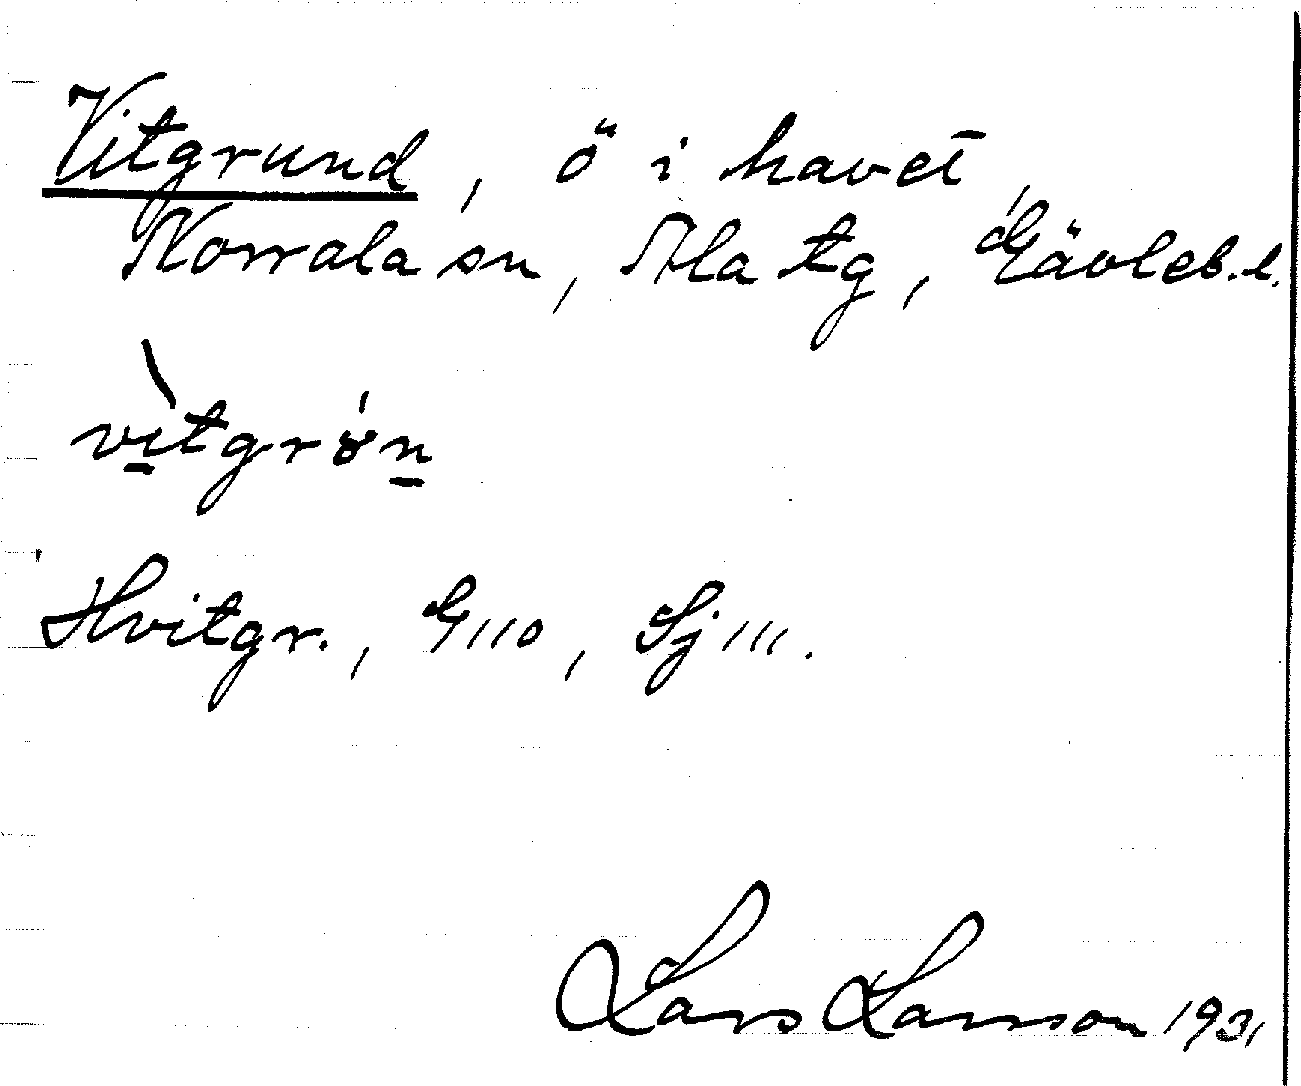 Vitgrund, ö i havet,
Norrala sn, Ala tg, Gävleb. l.
vì̠tgrón̠
Hvitgr., G110, Sj 111.
Lars Larsson 1931